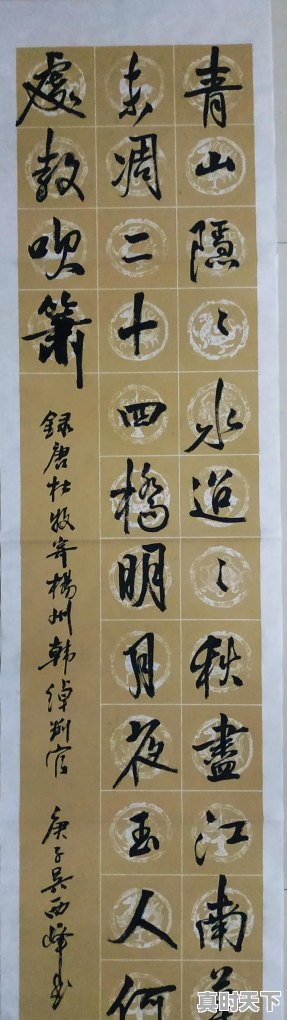 青山隱〻水迢〻秋盡江南草
未凋二十四橋明月夜玉人何
處教吹簫
錄唐杜牧寄楊州韓綽判官
庚子吳西峰書
真时天下